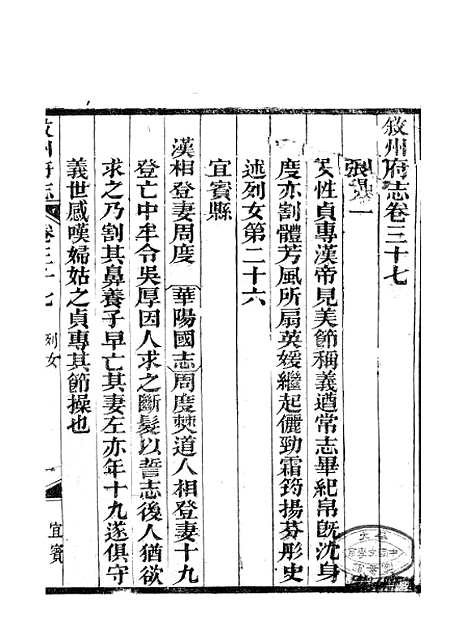 敘州府志卷三十七
列女一
性貞專漢帝見美節稱義遒常志畢紀帛旣沈身
度亦割體芳風所扇英媛繼起儷勁霜筠揚芬彤史
述列女第二十六
宜賓縣
漢相登妻周度 華陽國志周度僰道人相登妻十九
登亡中牟令吳厚因人求之斷髮以誓志後人猶欲
求之乃割其鼻養子早亡其妻左亦年十九遂俱守
義世感嘆婦姑之貞專其節操也
敘州府志 卷三十七 列女 一 宜賓